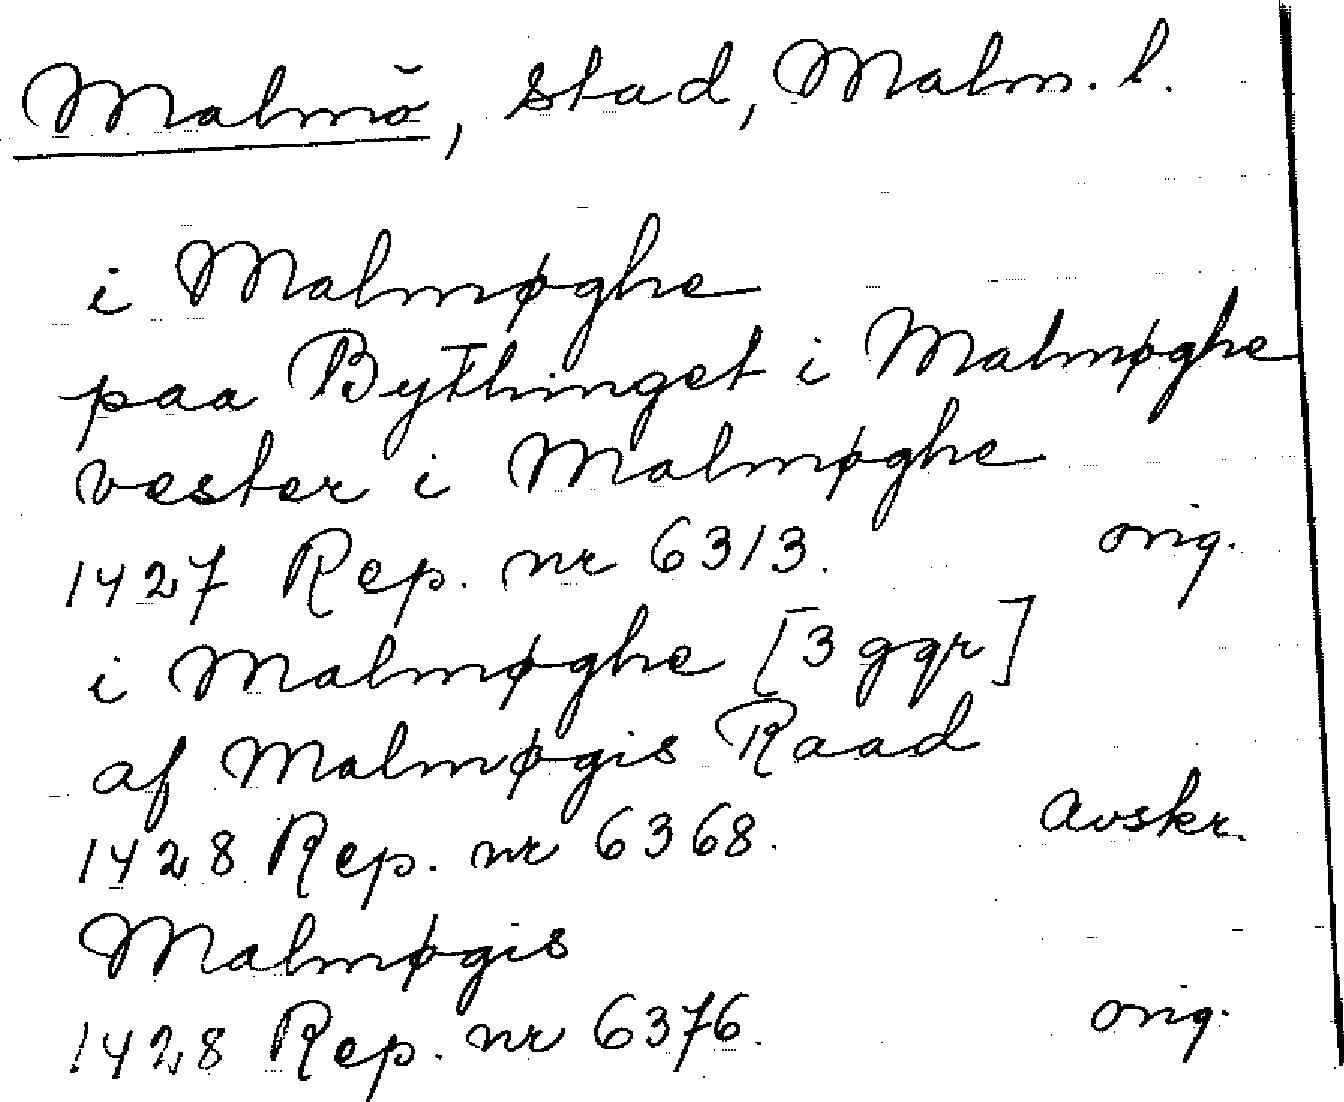 Malmö, stad, Malm. l.
i Malmøghe
paa Bythinget i Malmøghe
vester i Malmøghe
1427 Rep. nr 6313. orig.
i Malmøghe [3 ggr]
af Malmøgis Raad
1428 Rep. nr 6368. Avskr.
Malmøgis
1428 Rep. nr 6376. orig.